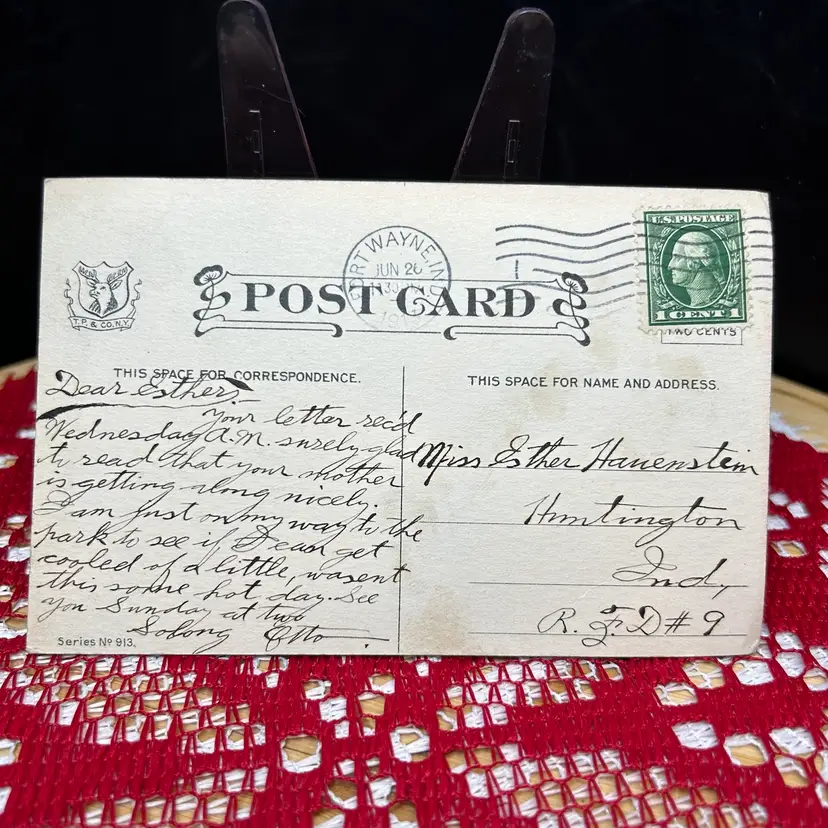 FORT WAYNE, IND.
JUN 26
POST CARD
U.S. POSTAGE
1 CENT 1
TWO CENTS
T. P. & CO. N.Y.
THIS SPACE FOR CORRESPONDENCE.
Dear Esther,
Your letter rec'd
Wednesday A.M. surely glad
to read that your mother
is getting along nicely.
I am just on my way to the
park to see if I can get
cooled of a little, wasent
this some hot day. See
you Sunday at two
Solong Otto.
Series No 913.
THIS SPACE FOR NAME AND ADDRESS.
Miss Esther Hauenstein
Huntington
Ind.,
R. F. D # 9